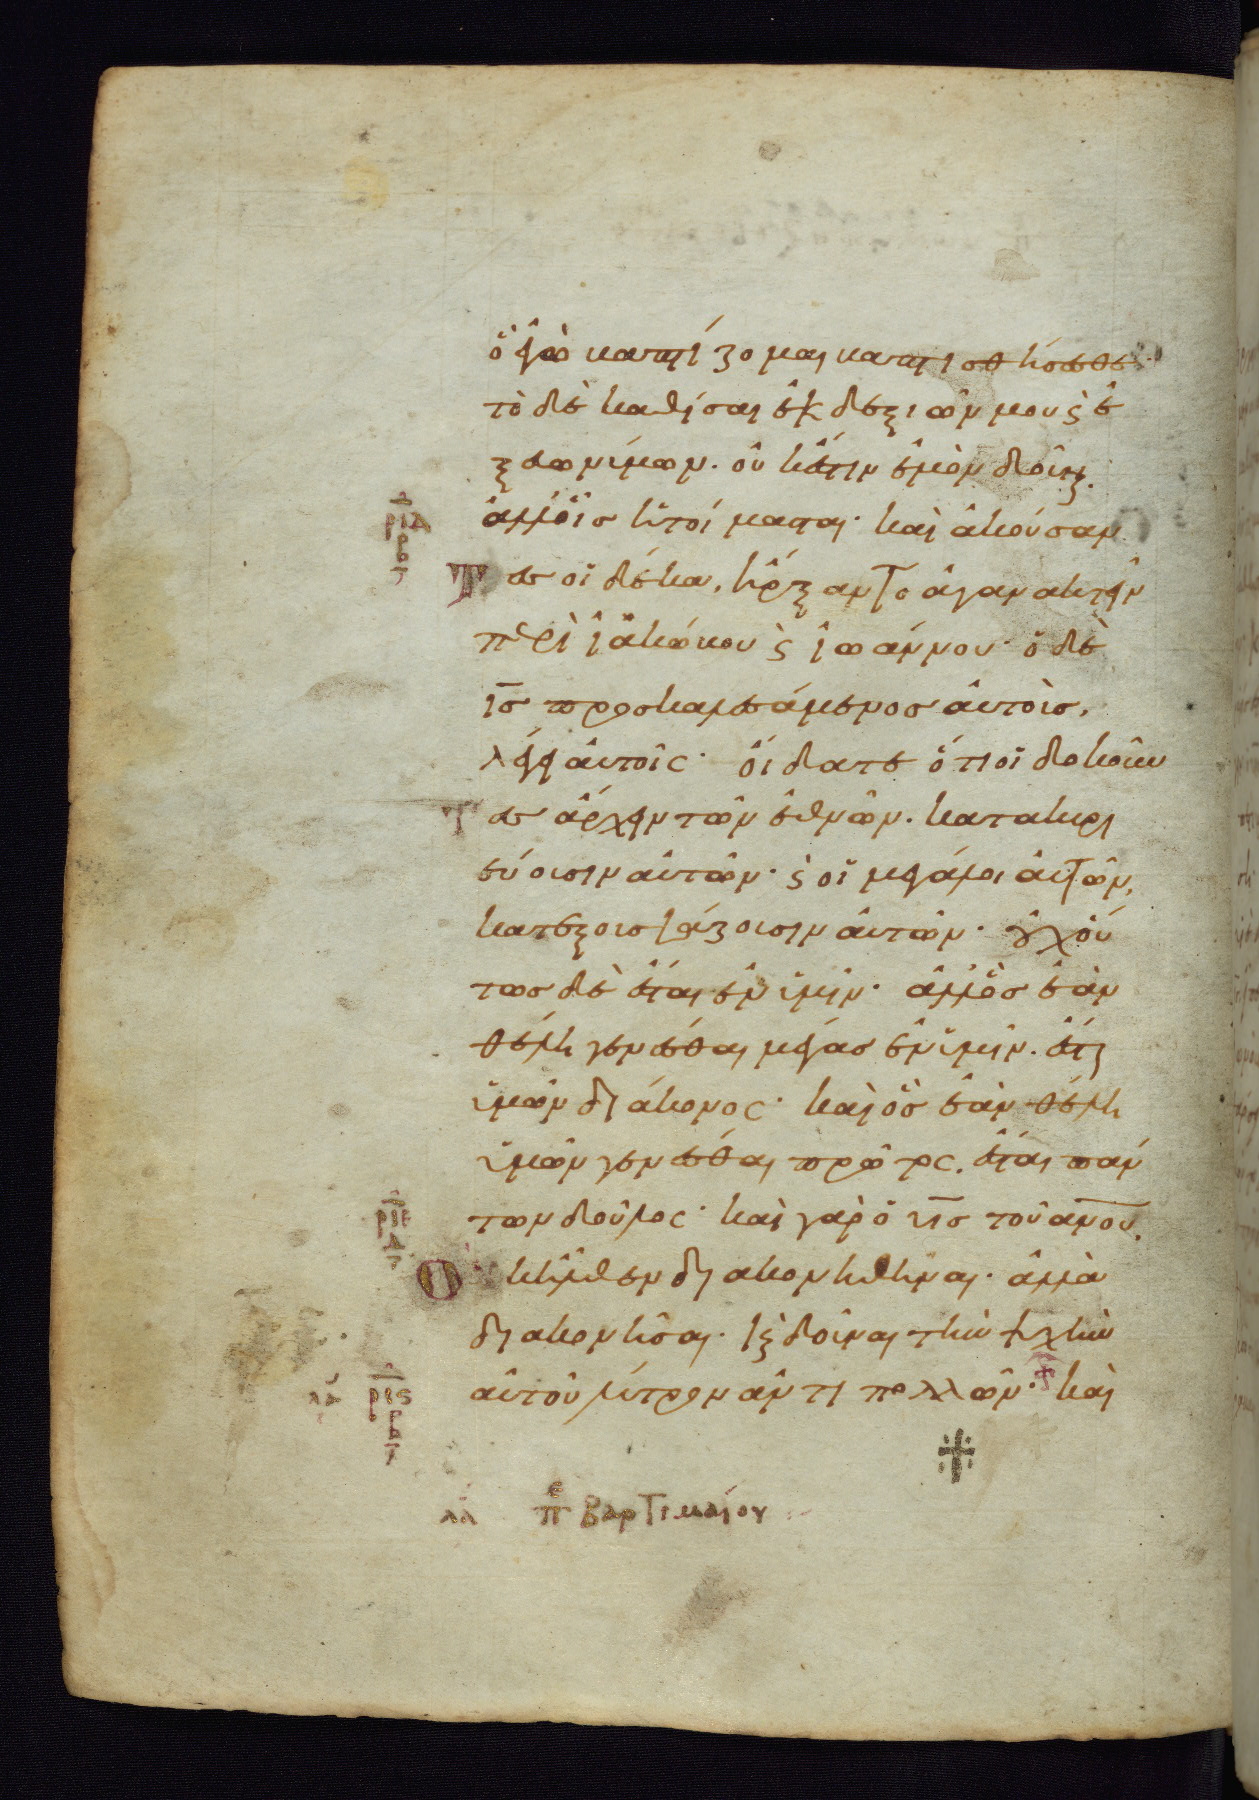 ὃ ἐγὼ βαπτίζομαι βαπτισθήσεσθε·
τὸ δὲ καθίσαι ἐκ δεξιῶν μου ϛ ἐ
ξ εὐωνύμων. οὐκ ἔστιν ἐμὸν δοῦναι.
ἀλλ' οἷς ἡτοίμασται· καὶ ἀκούσαν
τες οἱ δέκα, ἤρξαντο ἀγανακτεῖν
περὶ ἰακώβου ϛ ἰωάννου· ὁ δὲ
ις προσκαλεσάμενος αὐτοὺς,
λέγει αὐτοῖς· οἴδατε ὅτι οἱ δοκοῦν
τες ἄρχειν τῶν ἐθνῶν. κατακυρι
εύουσιν αὐτῶν· ϛ οἱ μεγάλοι αὐτῶν,
κατεξουσιάζουσιν αὐτῶν· οὐχ οὕ
τως δὲ ἔσται ἐν ὑμῖν· ἀλλ' ὃς ἐὰν
θέλη γενέσθαι μέγας ἐν ὑμῖν. ἔσται
ὑμῶν διάκονος· καὶ ὃς ἐὰν θέλη
ὑμῶν γενέσθαι πρῶτος. ἔσται πάν
των δοῦλος· καὶ γὰρ ὁ υις τοῦ ανου,
Οὐκ ἦλθεν διακονηθῆναι. ἀλλὰ
διακονῆσαι. καὶ δοῦναι τὴν ψυχὴν
αὐτοῦ λύτρον ἀντὶ πολλῶν· καὶ
λα πε βαρτιμαίου